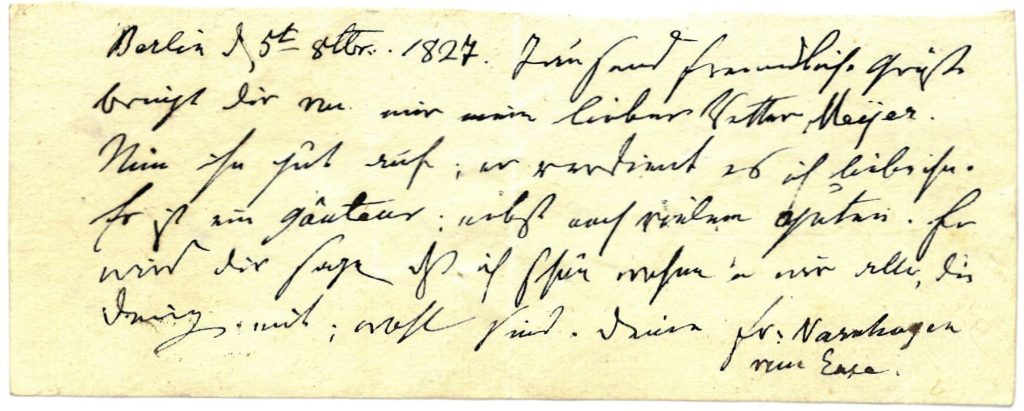 Berlin d 5t 8tbr. 1827. Tausend freundliche Grüße
bringt dir von mir mein lieber Vetter Meyer.
Nim ihn gut auf; er verdient es ich liebe ihn.
Er ist ein gouteur; nebst noch vielem guten. Er
wird dir sagen daß ich schön wohne u wir alle, die
mit; wohl sind. Deine Fr: Varnhagen
von Ense.